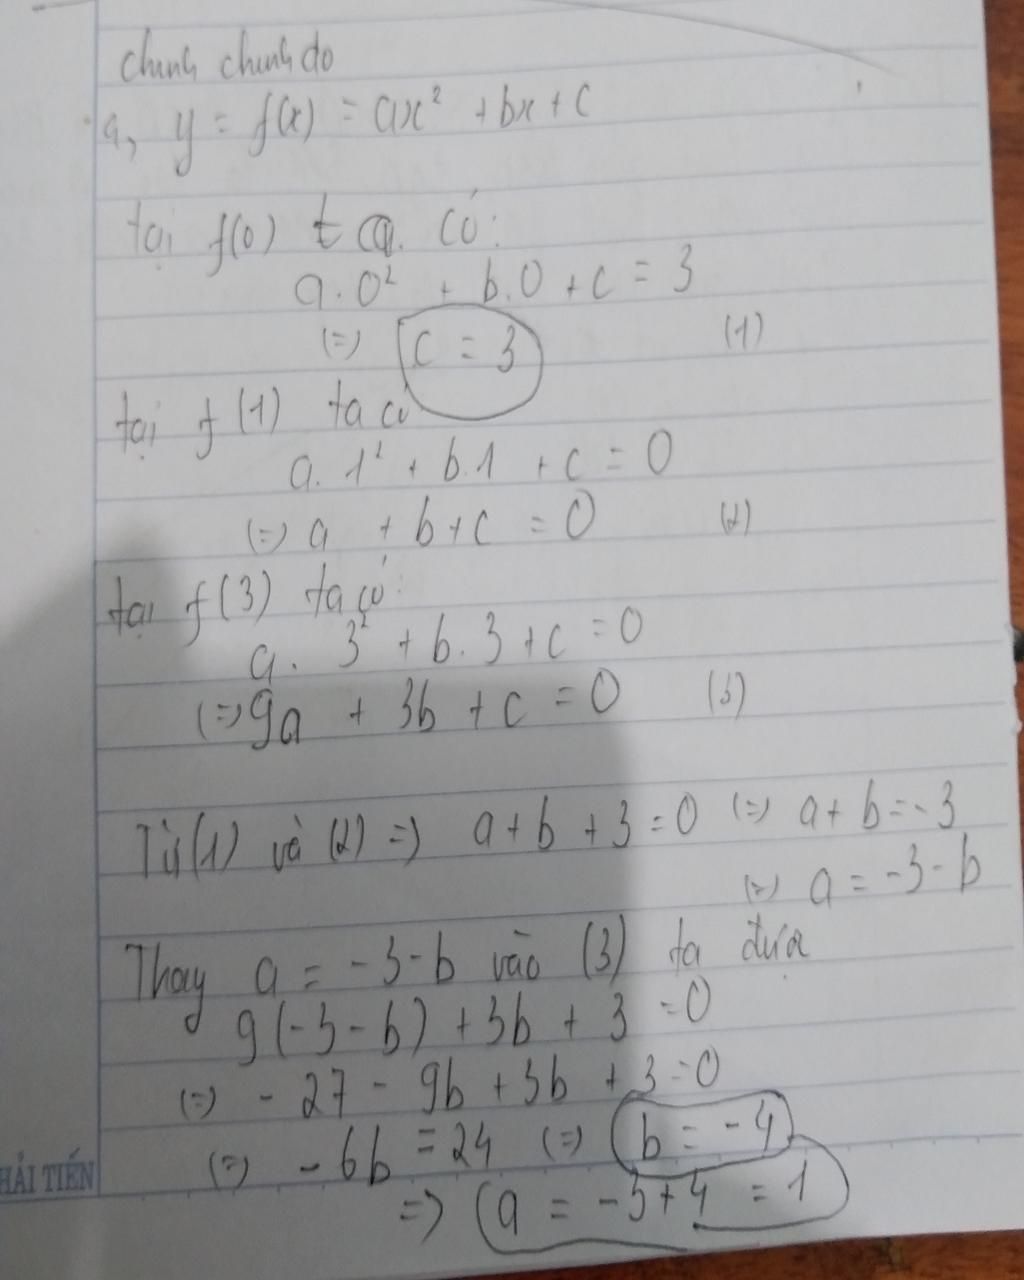 chung chung do
a, y = f(x) = ax² + bx + c
tại f(0) ta có:
a.0² + b.0 + c = 3
(=) c = 3 (1)
tại f(1) ta có
a.1² + b.1 + c = 0
(=) a + b + c = 0 (2)
tại f(3) ta có:
a.3² + b.3 + c = 0
(=) 9a + 3b + c = 0 (3)
Từ (1) và (2) =) a + b + 3 = 0 (=) a + b = -3
(=) a = -3 - b
Thay a = -3 - b vào (3) ta được
9(-3 - b) + 3b + 3 = 0
(=) -27 - 9b + 3b + 3 = 0
(=) -6b = 24 (=) b = -4
HẢI TIẾN
=) a = -3 + 4 = 1